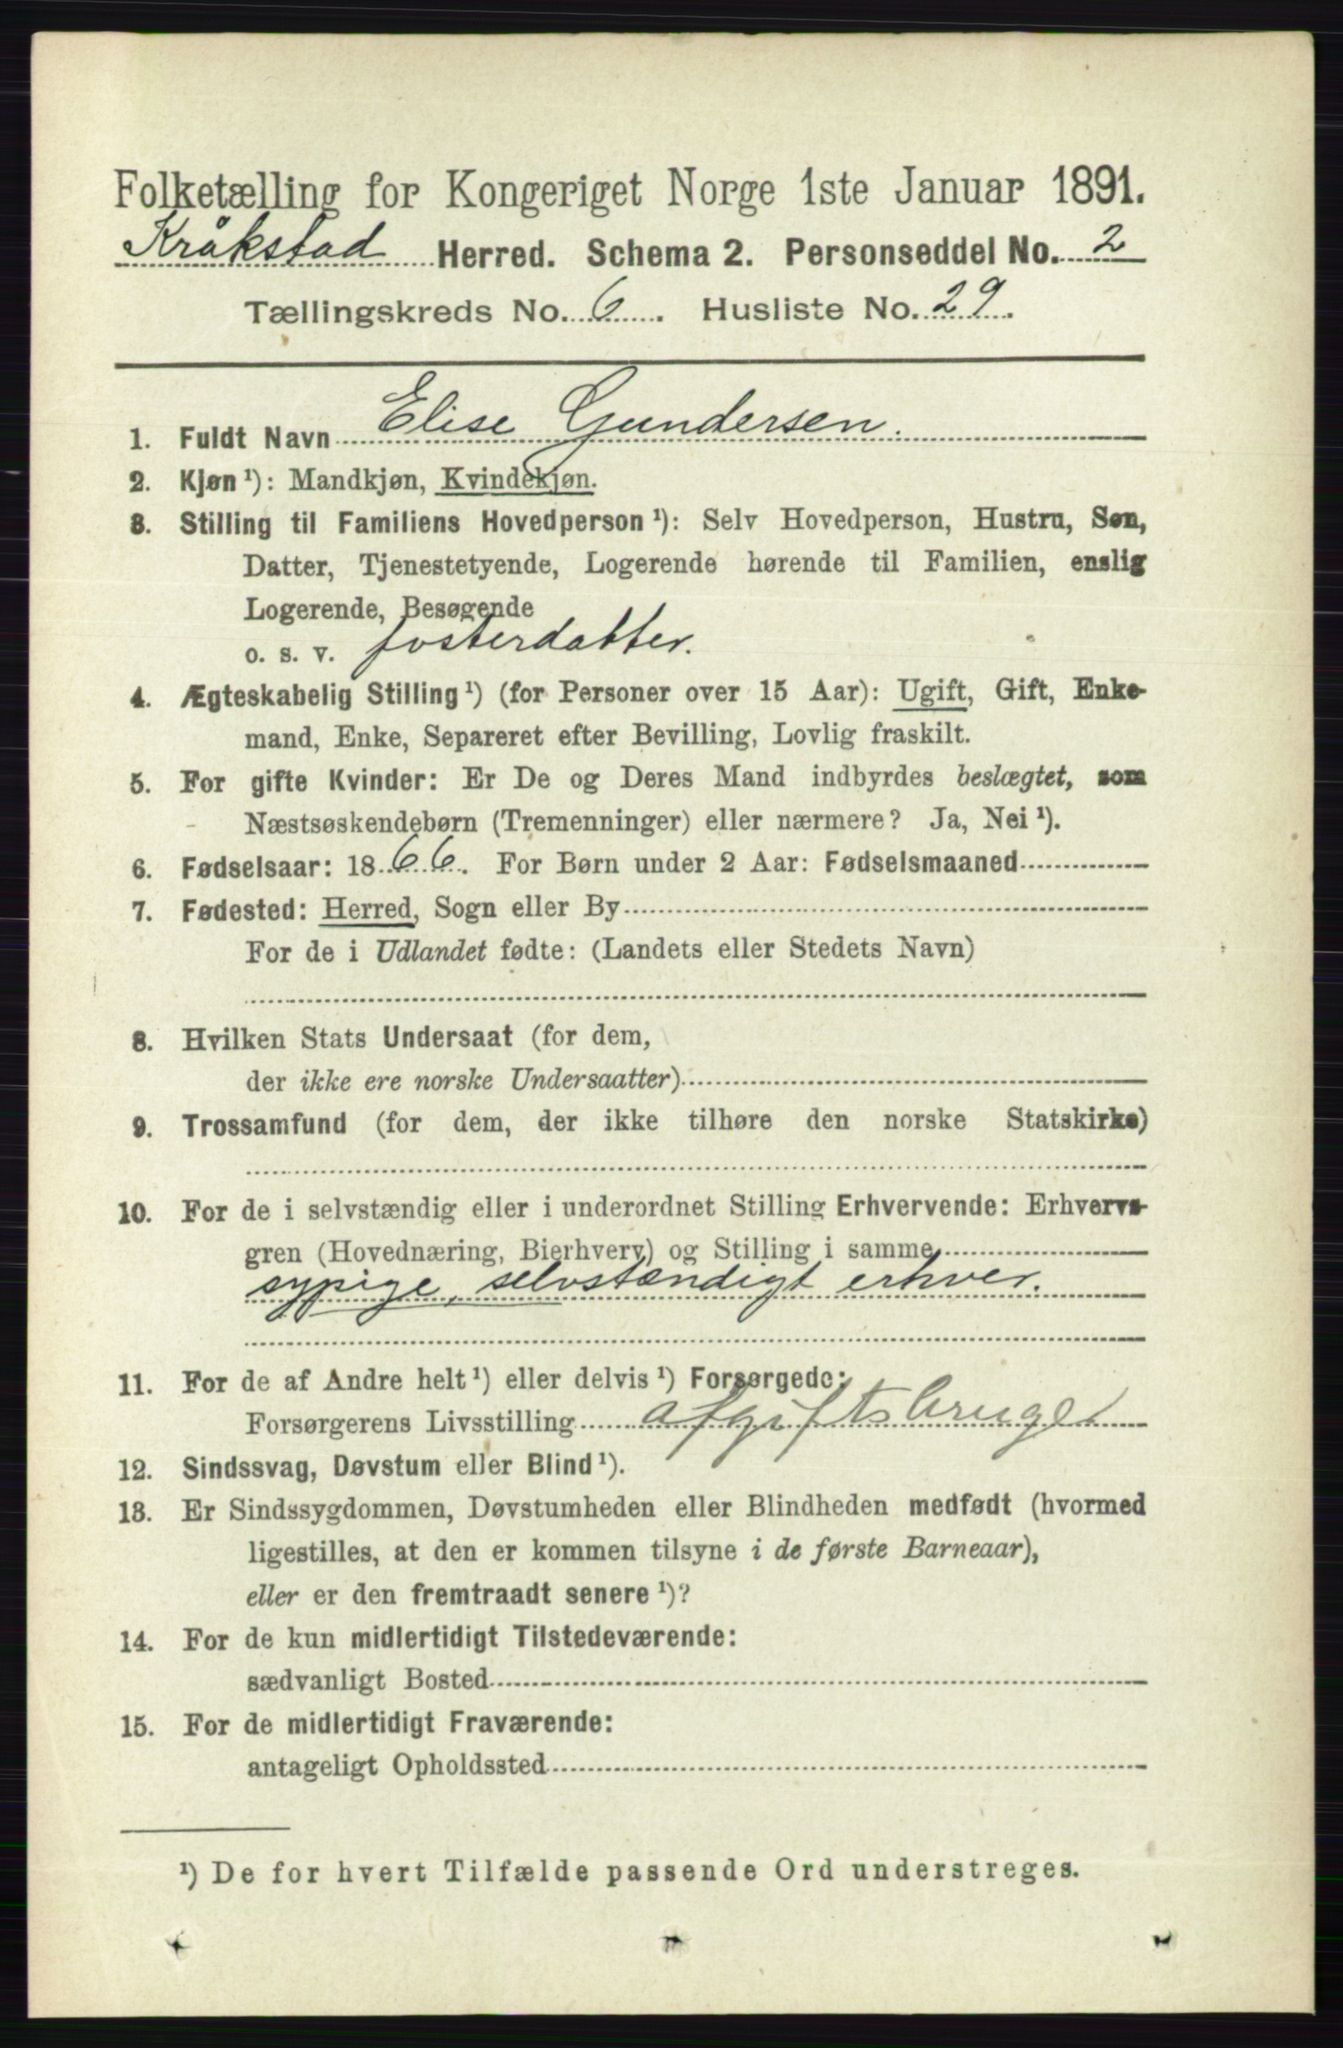 Folketælling for Kongeriget Norge 1ste Januar 1891.
Kråkstad Herred. Schema 2. Personseddel No. 2
Tællingskreds No. 6. Husliste No. 29.
1. Fuldt Navn Elise Gundersen.
2. Kjøn ¹): Mandkjøn, Kvindekjøn.
3. Stilling til Familiens Hovedperson ¹): Selv Hovedperson, Hustru, Søn,
Datter, Tjenestetyende, Logerende hørende til Familien, enslig
Logerende, Besøgende
o. s. v. fosterdatter.
4. Ægteskabelig Stilling ¹) (for Personer over 15 Aar): Ugift, Gift, Enke-
mand, Enke, Separeret efter Bevilling, Lovlig fraskilt.
5. For gifte Kvinder: Er De og Deres Mand indbyrdes beslægtet, som
Næstsøskendebørn (Tremenninger) eller nærmere? Ja, Nei ¹).
6. Fødselsaar: 1866. For Børn under 2 Aar: Fødselsmaaned
7. Fødested: Herred, Sogn eller By
For de i Udlandet fødte: (Landets eller Stedets Navn)
8. Hvilken Stats Undersaat (for dem,
der ikke ere norske Undersaatter)
9. Trossamfund (for dem, der ikke tilhøre den norske Statskirke)
10. For de i selvstændig eller i underordnet Stilling Erhvervende: Erhvervs-
gren (Hovednæring, Bierhverv) og Stilling i samme
sypige, selvstændigt erhver.
11. For de af Andre helt ¹) eller delvis ¹) Forsørgede:
Forsørgerens Livsstilling afgiftsbruger
12. Sindssvag, Døvstum eller Blind ¹).
13. Er Sindssygdommen, Døvstumheden eller Blindheden medfødt (hvormed
ligestilles, at den er kommen tilsyne i de første Barneaar),
eller er den fremtraadt senere ¹)?
14. For de kun midlertidigt Tilstedeværende:
sædvanligt Bosted
15. For de midlertidigt Fraværende:
antageligt Opholdssted
¹) De for hvert Tilfælde passende Ord understreges.